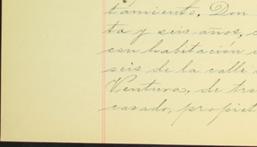 tamiento. Don
ta y seis años, c
con habitación e
seis de la calle d
Ventura, de tra
casado, propiet